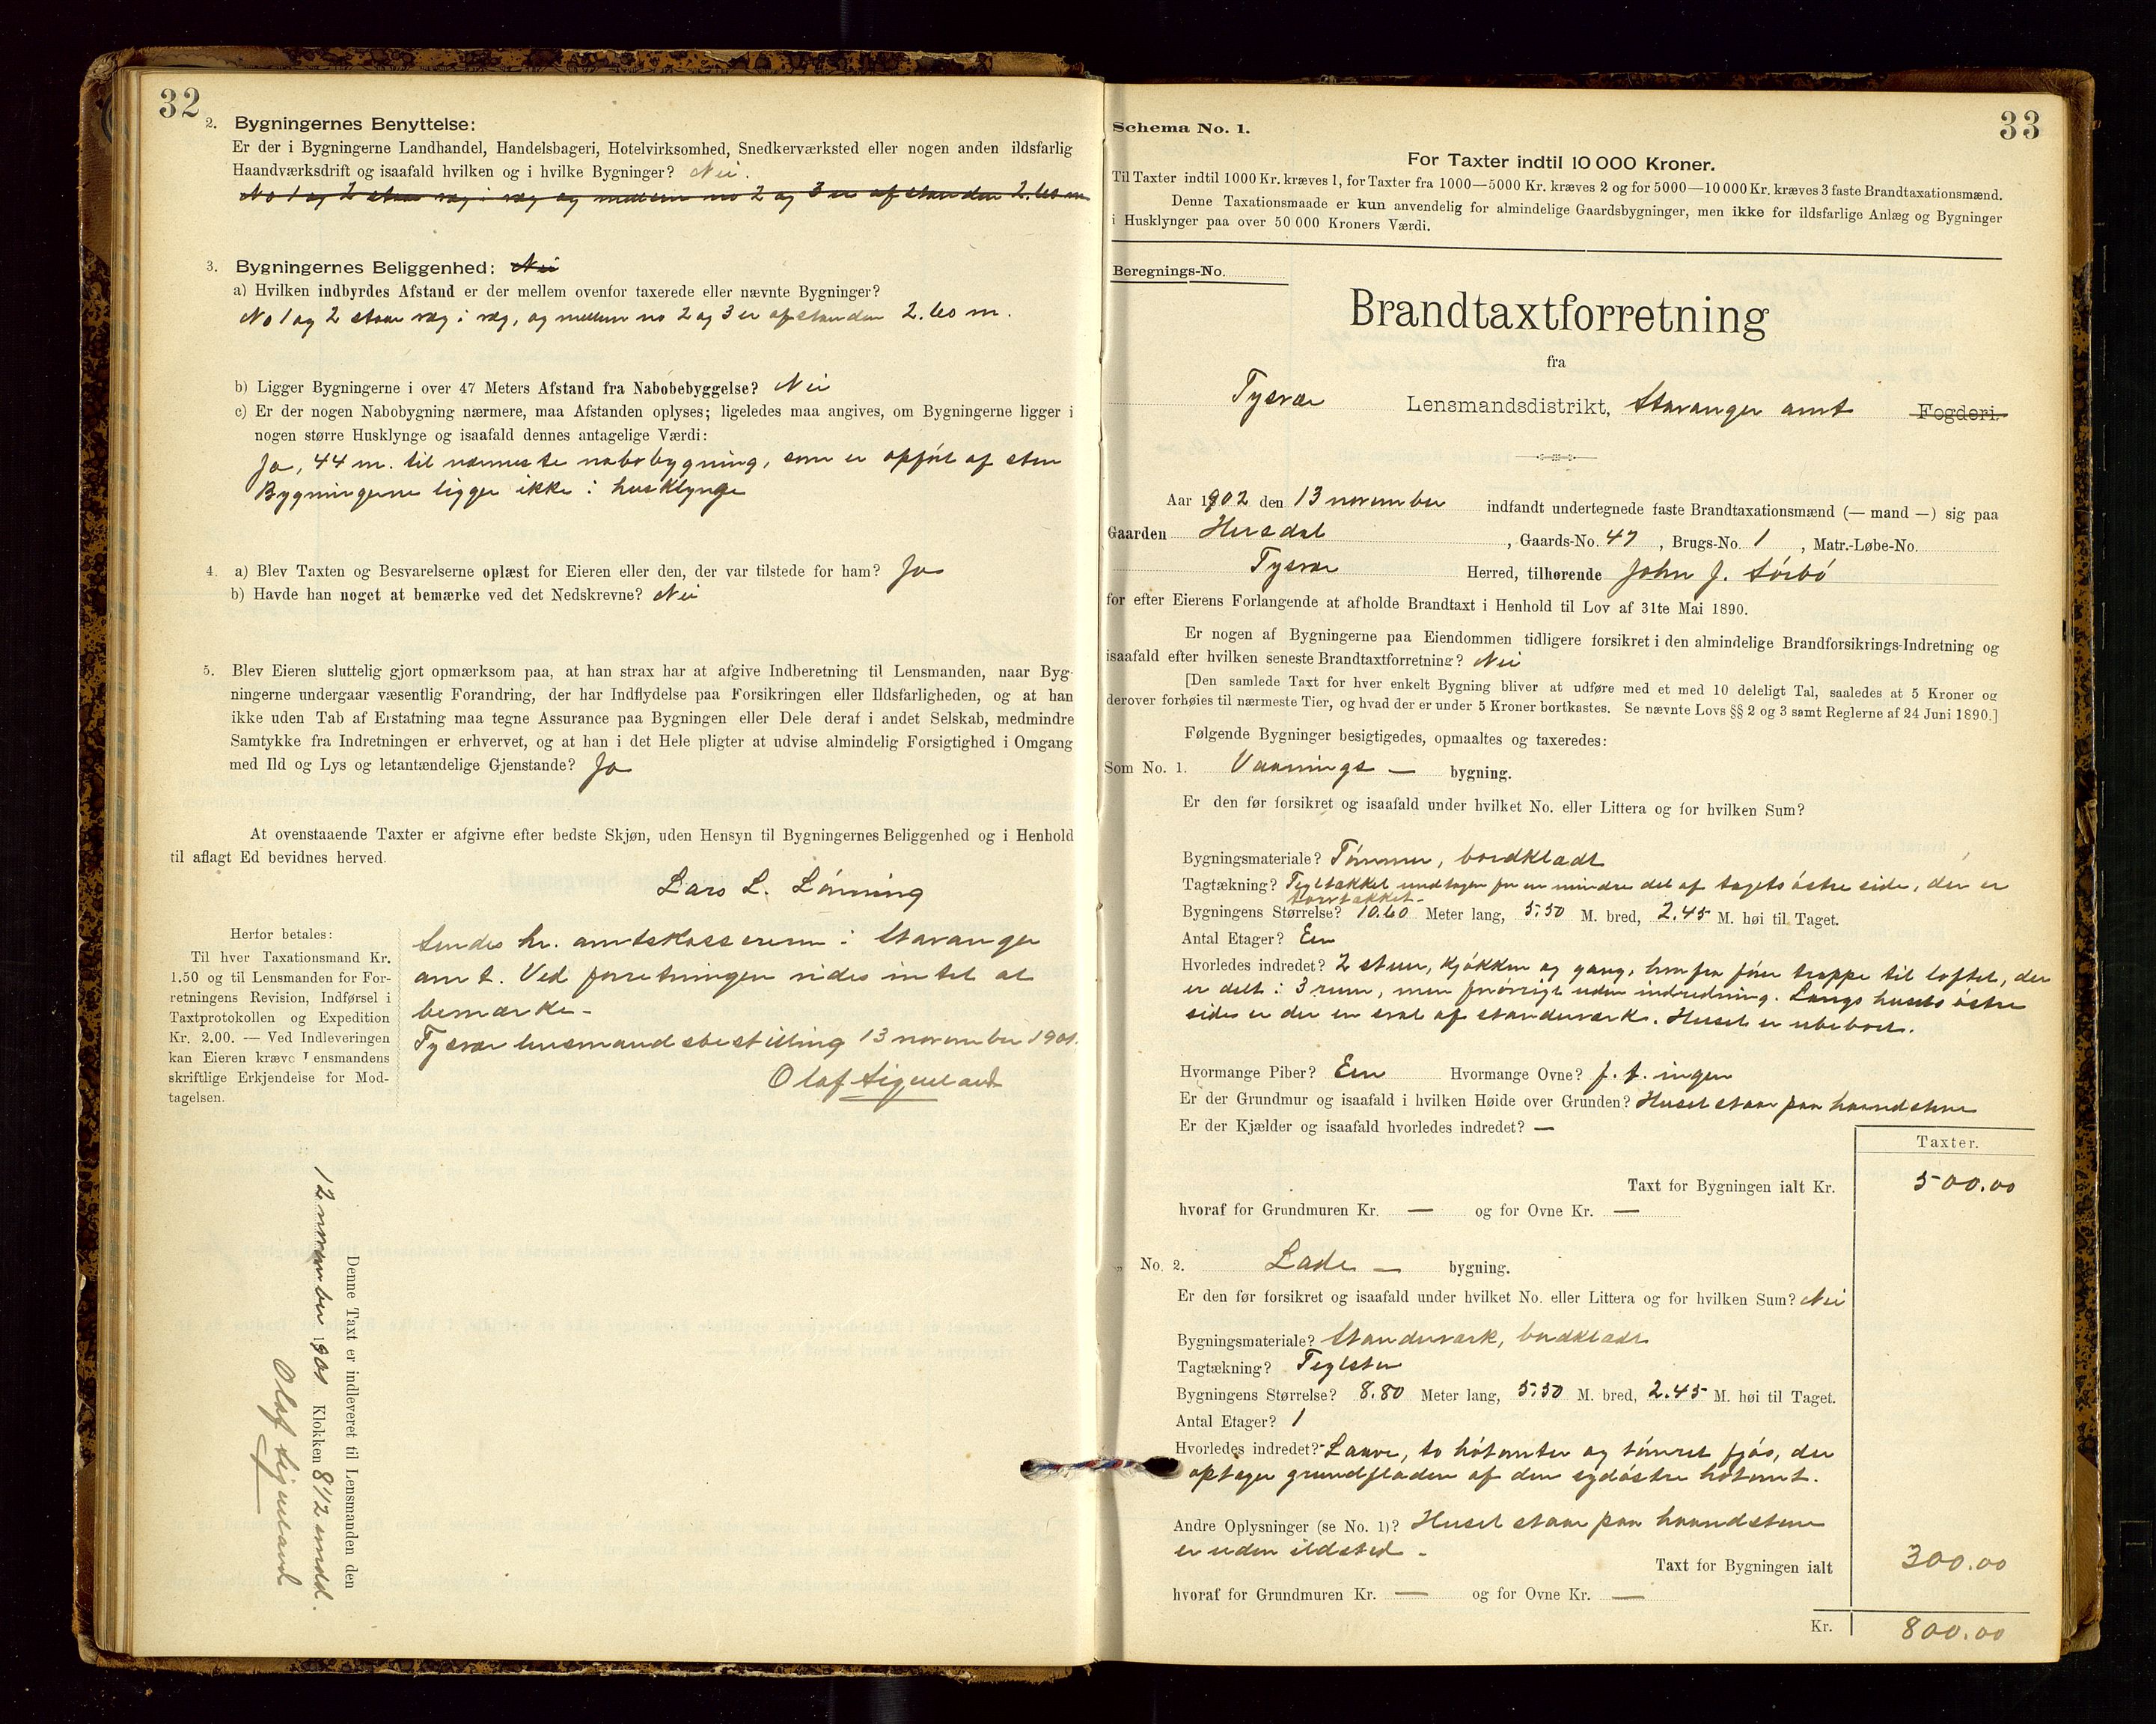 32
2. Bygningernes Benyttelse:
Er der i Bygningerne Landhandel, Handelsbageri, Hotelvirksomhed, Snedkerværksted eller nogen anden ildsfarlig
Haandværksdrift og isaafald hvilken og i hvilke Bygninger? Nei.
No 1 og 2 staar væg i væg og mellem no 2 og 3 er afstanden 2.60 m
3. Bygningernes Beliggenhed: Nei
a) Hvilken indbyrdes Afstand er der mellem ovenfor taxerede eller nævnte Bygninger?
No 1 og 2 staar væg i væg, og mellem no 2 og 3 er afstanden 2.60 m.
b) Ligger Bygningerne i over 47 Meters Afstand fra Nabobebyggelse? Nei
c) Er der nogen Nabobygning nærmere, maa Afstanden oplyses; ligeledes maa angives, om Bygningerne ligger i
nogen større Husklynge og isaafald dennes antagelige Værdi:
Ja, 44 m. til nærmeste nabobygning, som er opført af sten
Bygningerne ligger ikke i husklynge
4. a) Blev Taxten og Besvarelserne oplæst for Eieren eller den, der var tilstede for ham? Ja
b) Havde han noget at bemærke ved det Nedskrevne? Nei
5. Blev Eieren sluttelig gjort opmærksom paa, at han strax har at afgive Indberetning til Lensmanden, naar Byg-
ningerne undergaar væsentlig Forandring, der har Indflydelse paa Forsikringen eller Ildsfarligheden, og at han
ikke uden Tab af Erstatning maa tegne Assurance paa Bygningen eller Dele deraf i andet Selskab, medmindre
Samtykke fra Indretningen er erhvervet, og at han i det Hele pligter at udvise almindelig Forsigtighed i Omgang
med Ild og Lys og letantændelige Gjenstande? Ja
At ovenstaaende Taxter er afgivne efter bedste Skjøn, uden Hensyn til Bygningernes Beliggenhed og i Henhold
til aflagt Ed bevidnes herved.
Lars L. Lönning
Herfor betales:
Til hver Taxationsmand Kr.
1.50 og til Lensmanden for For-
retningens Revision, Indførsel i
Taxtprotokollen og Expedition
Kr. 2.00. — Ved Indleveringen
kan Eieren kræve Lensmandens
skriftlige Erkjendelse for Mod-
tagelsen.
Sendes hr. amtskassereren i Stavanger
amt. Ved forretningen vides intet at
bemærke.
Tysvær lensmandsbestilling 13 november 1901.
Olaf Sigueland
Denne Taxt er indleveret til Lensmanden den
12 november 1901 Klokken 8 1/2 
Olaf Sigueland
33
Schema No. 1.
For Taxter indtil 10 000 Kroner.
Til Taxter indtil 1000 Kr. kræves 1, for Taxter fra 1000—5000 Kr. kræves 2 og for 5000—10 000 Kr. kræves 3 faste Brandtaxationsmænd.
Denne Taxationsmaade er kun anvendelig for almindelige Gaardsbygninger, men ikke for ildsfarlige Anlæg og Bygninger
i Husklynger paa over 50 000 Kroners Værdi.
Beregnings-No.
Brandtaxtforretning
fra
Tysvær Lensmandsdistrikt, Stavanger amt Fogderi.
Aar 1902 den 13 november indfandt undertegnede faste Brandtaxationsmænd (— mand —) sig paa
Gaarden Hersdal, Gaards-No. 47, Brugs-No. 1, Matr.-Løbe-No.
Tysvær Herred, tilhørende John J. Sörbö
for efter Eierens Forlangende at afholde Brandtaxt i Henhold til Lov af 31te Mai 1890.
Er nogen af Bygningerne paa Eiendommen tidligere forsikret i den almindelige Brandforsikrings-Indretning og
isaafald efter hvilken seneste Brandtaxtforretning? Nei
[Den samlede Taxt for hver enkelt Bygning bliver at udføre med et med 10 deleligt Tal, saaledes at 5 Kroner og
derover forhøies til nærmeste Tier, og hvad der er under 5 Kroner bortkastes. Se nævnte Lovs §§ 2 og 3 samt Reglerne af 24 Juni 1890.]
Følgende Bygninger besigtigedes, opmaaltes og taxeredes:
Som No. 1. Vaanings — bygning.
Er den før forsikret og isaafald under hvilket No. eller Littera og for hvilken Sum?
Bygningsmateriale? Tömmer, bordklædt
Tagtækning? Tegltækket undtagen for en mindre del af tagets östre side, der er
torvtækket.
Bygningens Størrelse? 10.60 Meter lang, 5.50 M. bred, 2.45 M. høi til Taget.
Antal Etager? Een
Hvorledes indredet? 2 stuer, kjökken og gang, hvorfra förer trappe til loftet, der
er delt i 3 rum, men forövrigt uden indredning. Langs husets östre
side er der en sval af standerværk. Huset er ubeboet.
Hvormange Piber? Een Hvormange Ovne? f. t. ingen
Er der Grundmur og isaafald i hvilken Høide over Grunden? Huset staar paa haandstene
Er der Kjælder og isaafald hvorledes indredet? —
Taxter.
Taxt for Bygningen ialt Kr. 500.00
hvoraf for Grundmuren Kr. — og for Ovne Kr. —
„ No. 2. Lade — bygning.
Er den før forsikret og isaafald under hvilket No. eller Littera og for hvilken Sum? Nei
Bygningsmateriale? Standerværk, bordklædt
Tagtækning? Teglsten
Bygningens Størrelse? 8.80 Meter lang, 5.50 M. bred, 2.45 M. høi til Taget.
Antal Etager? 1
Hvorledes indredet? Laave, to hötomter og tömret fjös, der
optager grundfladen af den sydöstre hötomt.
Andre Oplysninger (se No. 1)? Huset staar paa haandstene
er uden ildsted.
Taxt for Bygningen ialt 300.00
hvoraf for Grundmuren Kr. — og for Ovne Kr. —
Kr. 800.00